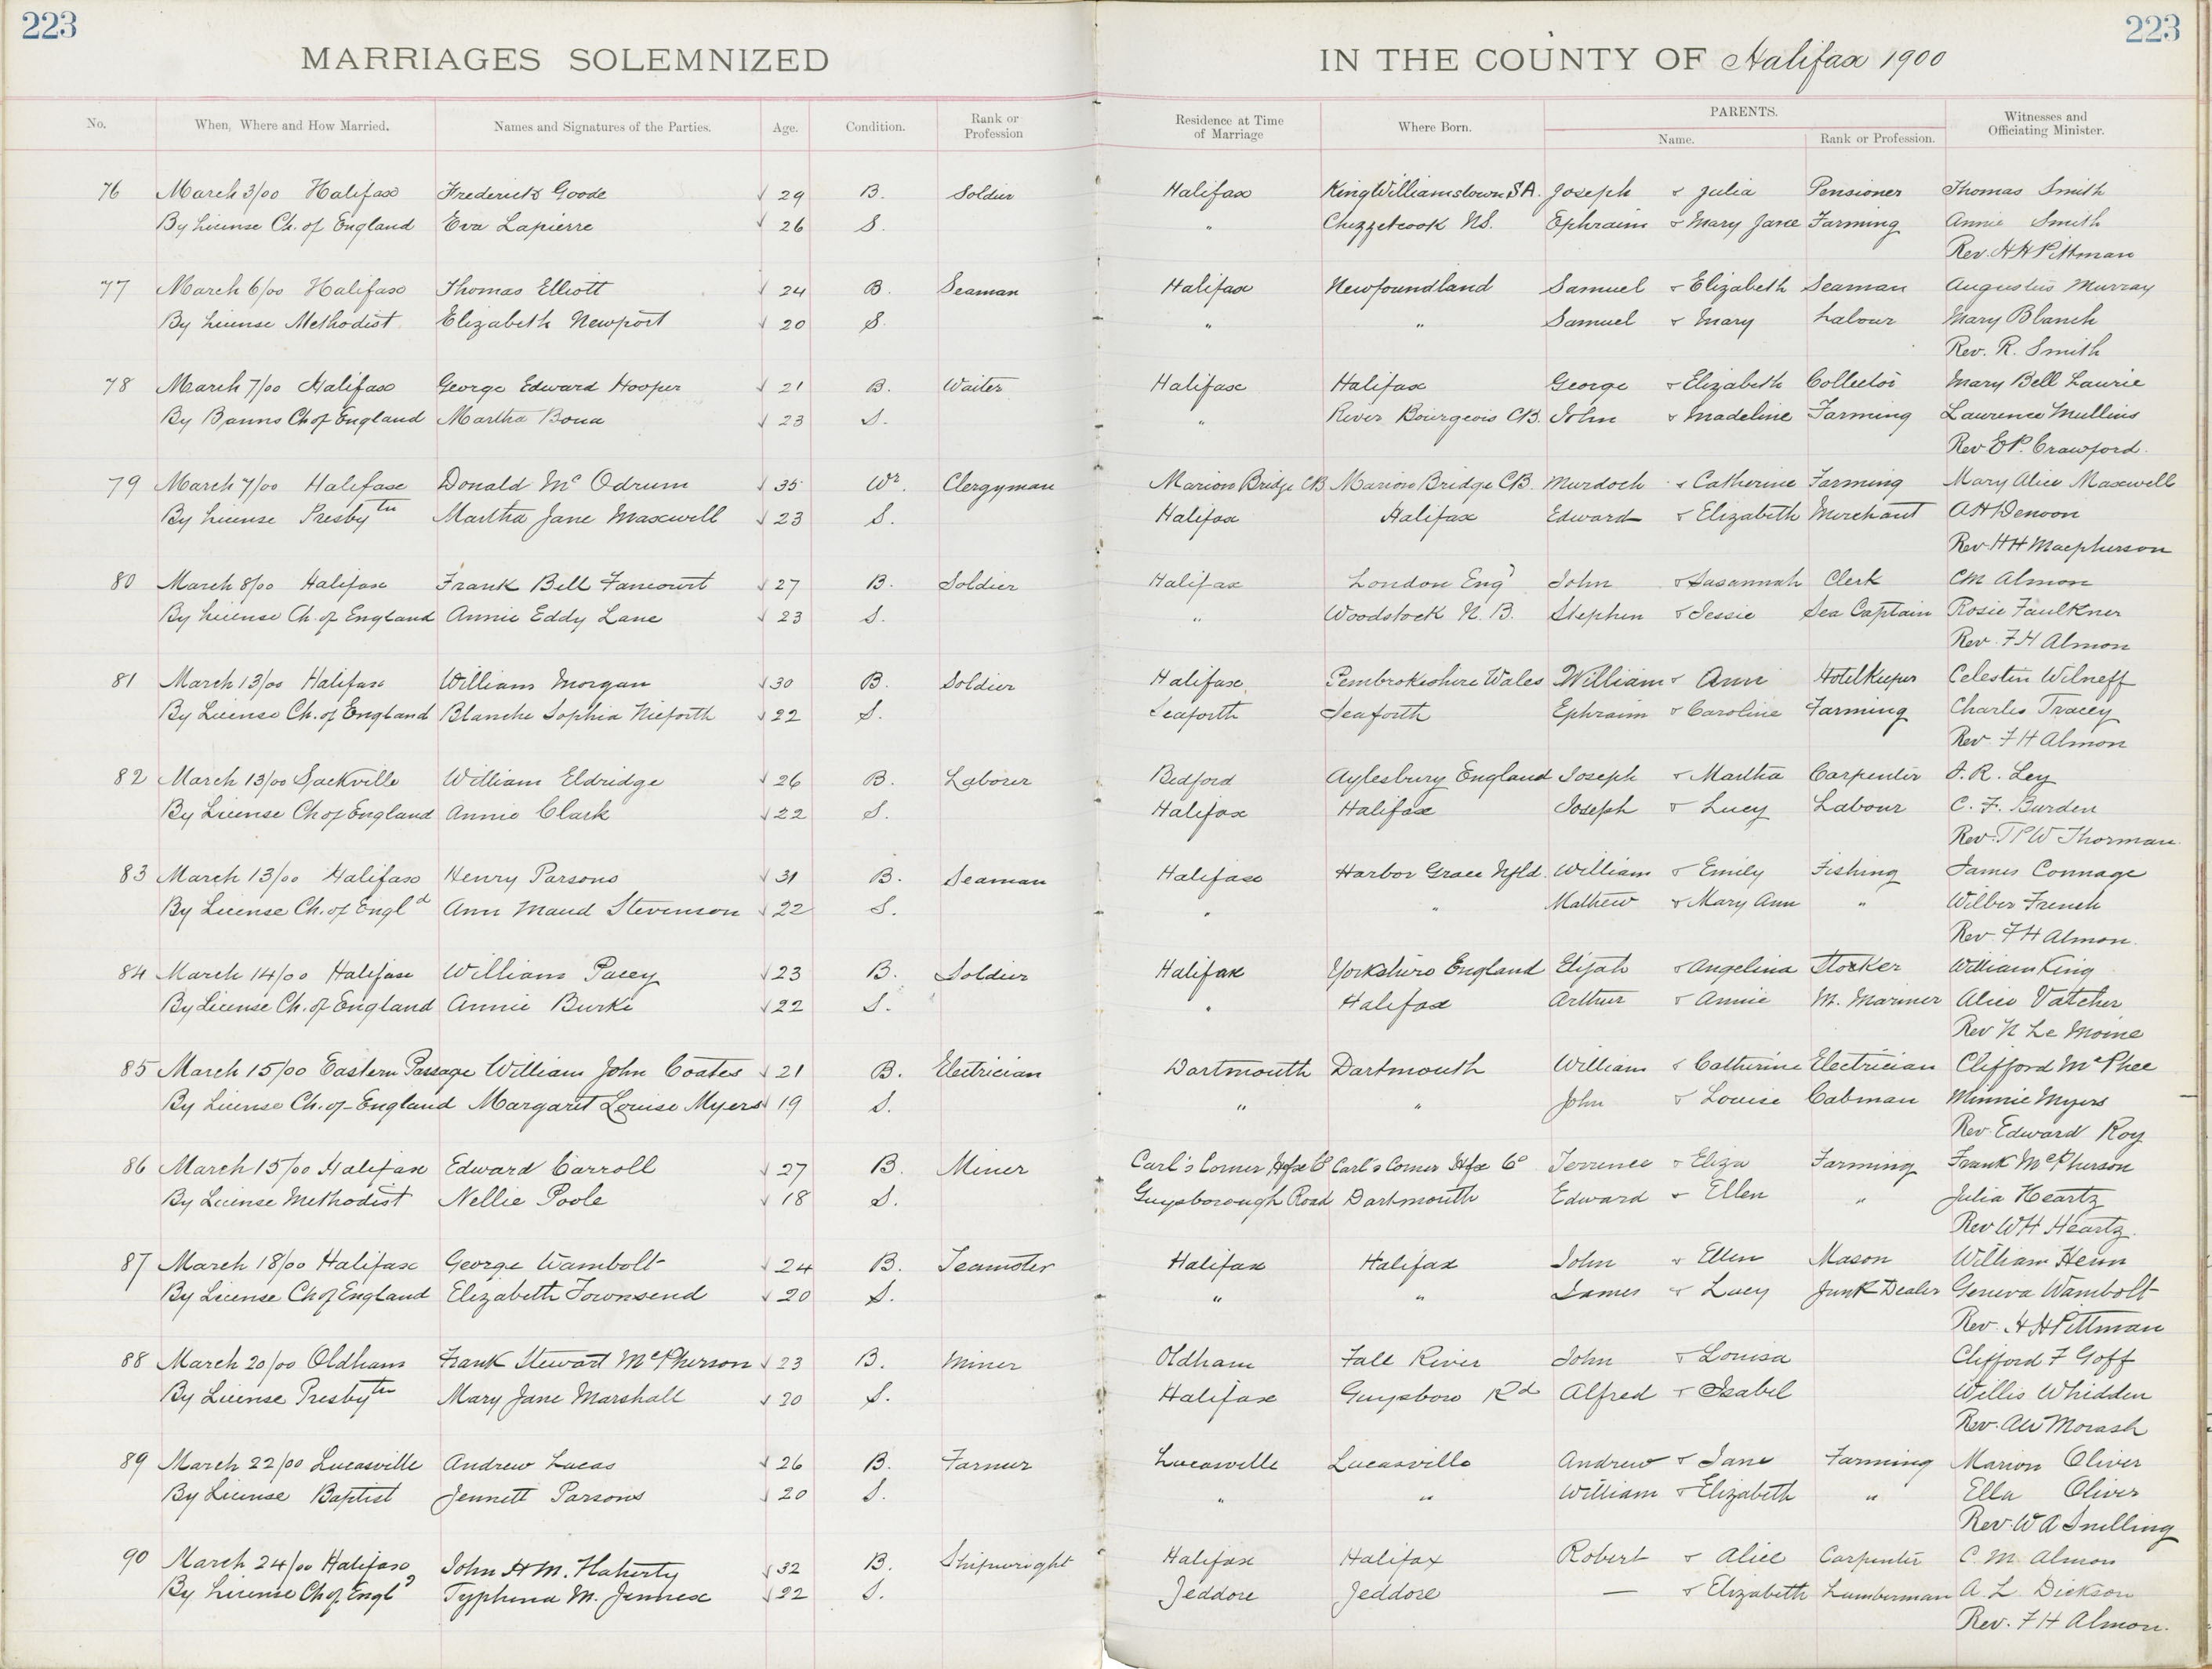 223
223
MARRIAGES SOLEMNIZED IN THE COUNTY OF Halifax 1900
No. When, Where and How Married. Names and Signatures of the Parties. Age. Condition. Rank or Profession Residence at Time of Marriage Where Born. PARENTS. Name. Rank or Profession. Witnesses and Officiating Minister.
76 March 3/00 Halifax Frederick Goode √ 29 B. Soldier Halifax King Williamstown S.A. Joseph & Julia Pensioner Thomas Smith
By License Ch. of England Eva Lapierre √ 26 S. " Chezzetcook NS. Ephraim & Mary Jane Farming Annie Smith
Rev. H H Pittman
77 March 6/00 Halifax Thomas Elliott √ 24 B. Seaman Halifax Newfoundland Samuel & Elizabeth Seaman Augustus Murray
By License Methodist Elizabeth Newport √ 20 S. " " Samuel & Mary Labour Mary Blanch
Rev. R. Smith
78 March 7/00 Halifax George Edward Hooper √ 21 B. Waiter Halifax Halifax George & Elizabeth Collector Mary Bell Laurie
By Banns Ch of England Martha Boua √ 23 S. " River Bourgeois CB. John & Madeline Farming Laurence Mullins
Rev E P. Crawford.
79 March 7/00 Halifax Donald Mc Odrum √ 35 Wr. Clergyman Marion Bridge CB Marion Bridge CB. Murdoch & Catherine Farming Mary Alice Maxwell
By License Presbytn Martha Jane Maxwell √ 23 S. Halifax Halifax Edward & Elizabeth Merchant A H Denoon
Rev H H Macpherson
80 March 8/00 Halifax Frank Bell Fancourt √ 27 B. Soldier Halifax London Engd John & Susannah Clerk CM Almon
By License Ch. of England Annie Eddy Lane √ 23 S. " Woodstock N. B. Stephen & Jessie Sea Captain Rosie Faulkner
Rev. F H Almon
81 March 13/00 Halifax William Morgan √ 30 B. Soldier Halifax Pembrokeshire Wales William & Ann Hotelkeeper Celestin Wilneff
By License Ch. of England Blanche Sophia Nieforth √ 22 S. Seaforth Seaforth Ephraim & Caroline Farming Charles Tracey
Rev. F H Almon
82 March 13/00 Sackville William Eldridge √ 26 B. Laborer Bedford Aylesbury England Joseph & Martha Carpenter J. R. Ley
By License Ch of England Annie Clark √ 22 S. Halifax Halifax Joseph & Lucy Labour C. F. Burden
Rev. T P W Thorman.
83 March 13/00 Halifax Henry Parsons √ 31 B. Seaman Halifax Harbor Grace Nfld. William & Emily Fishing James Connage
By License Ch. of Engld Ann Maud Stevenson √ 22 S. " " Mathew & Mary Ann " Wilber French
Rev. F H Almon.
84 March 14/00 Halifax William Pacey √ 23 B. Soldier Halifax Yorkshire England Elijah & Angelina Stoker William King
By License Ch. of England Annie Burke √ 22 S. " Halifax Arthur & Annie M. Mariner Alice Vatcher
Rev N Le Moine
85 March 15/00 Eastern Passage William John Coates √ 21 B. Electrician Dartmouth Dartmouth William & Catherine Electrician Clifford McPhee
By License Ch. of England Margaret Louise Myers √ 19 S. " " John & Louise Cabman Minnie Myers
Rev. Edward Roy
86 March 15/00 Halifax Edward Carroll √ 27 B. Miner Carl's Corner Hfx Co Carl's Corner Hfx Co Terrence & Eliza Farming Frank McPherson
By License Methodist Nellie Poole √ 18 S. Guysborough Road Dartmouth Edward & Ellen " Julia Heartz
Rev W H Heartz.
87 March 18/00 Halifax George Wambolt √ 24 B. Teamster Halifax Halifax John & Ellen Mason William Henn
By License Ch of England Elizabeth Townsend √ 20 S. " " James & Lucy Junk Dealer Geneva Wambolt
Rev. H H Pittman
88 March 20/00 Oldham Frank Stewart McPherson √ 23 B. Miner Oldham Fall River John & Louisa Clifford F Goff
By License Presbytn Mary Jane Marshall √ 30 S. Halifax Guysboro Rd Alfred & Isabel Willis Whidden
Rev. AW Morash
89 March 22/00 Lucasville Andrew Lucas √ 26 B. Farmer Lucasville Lucasville Andrew & Jane Farming Marion Oliver
By License Baptist Jennett Parsons √ 20 S. " " William & Elizabeth " Ella Oliver
Rev. W A Snelling
90 March 24/00 Halifax John H M. Flaherty √ 32 B. Shipwright Halifax Halifax Robert & Alice Carpenter C. M. Almon
By License Ch of Engld Typhena M. Jennex √ 22 S. Jeddore Jeddore — & Elizabeth Lumberman A. L. Dickson
Rev. F H Almon.